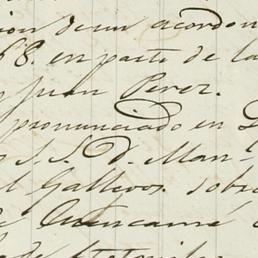 de un acordon
68. en parte de la
Juan Perez.
pronunciado en
S. S. D. Man-
l Gallegos. sobre
de